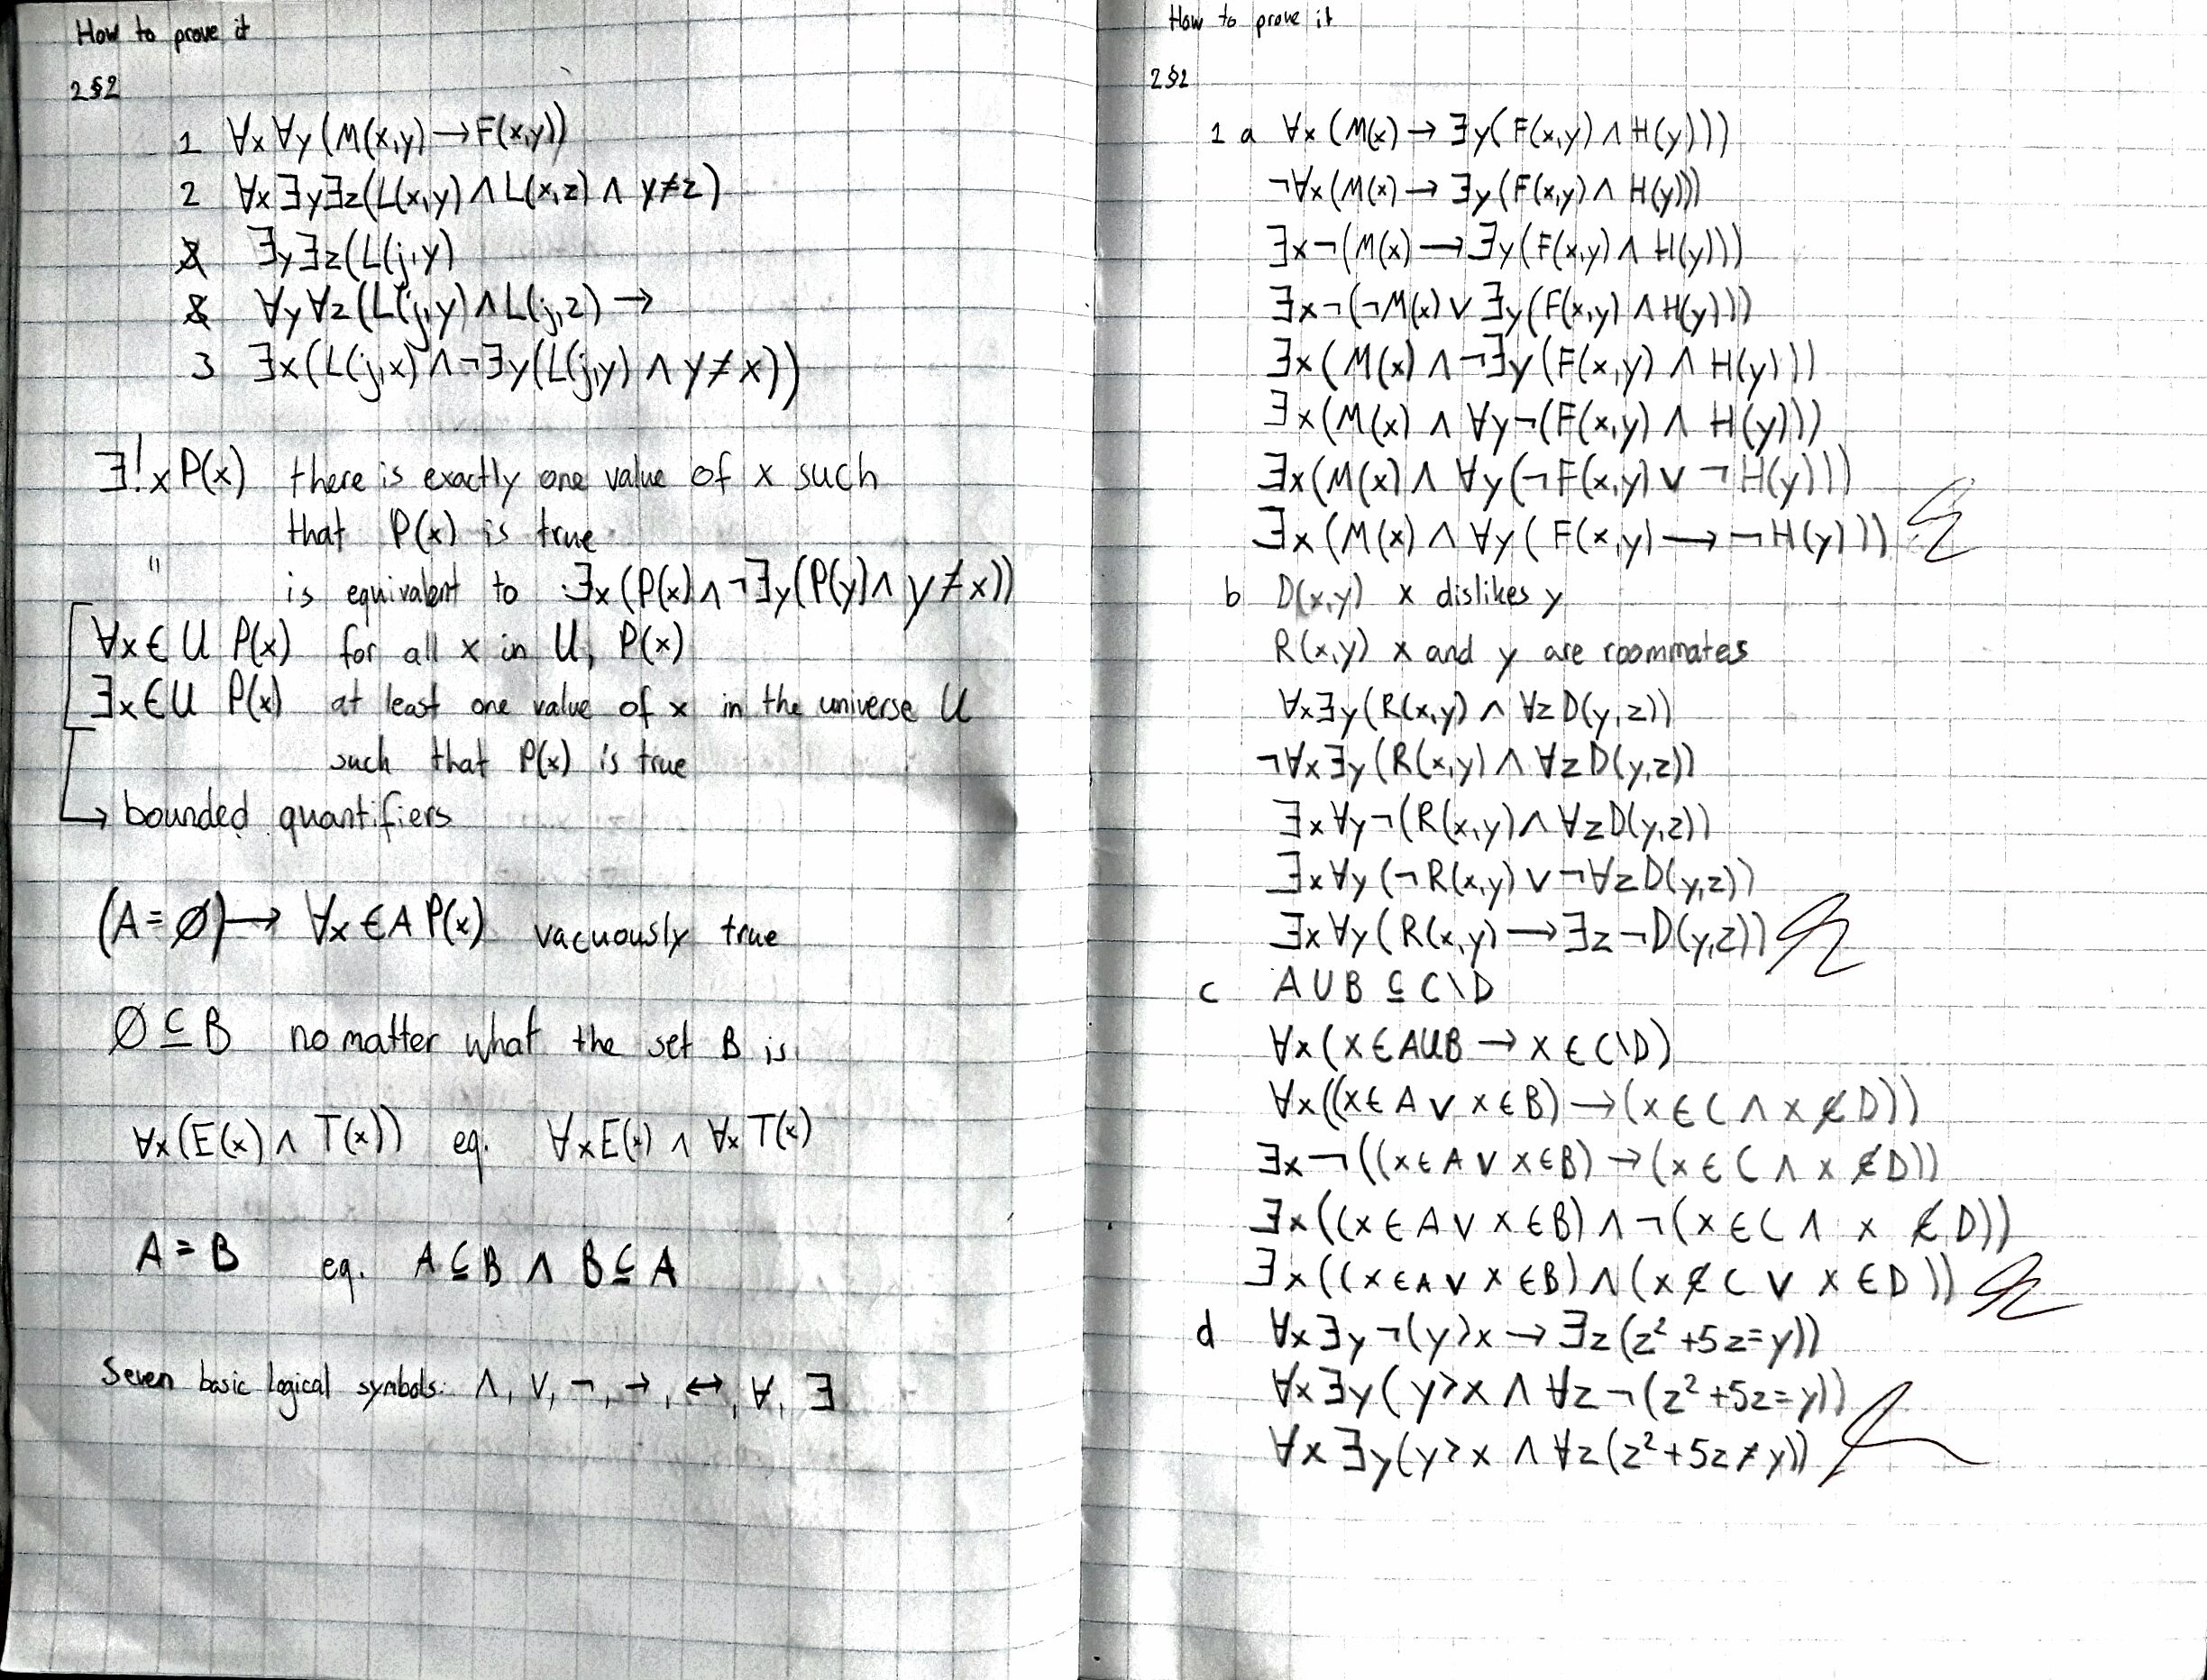 How to prove it
2§2
1 ∀x∀y(M(x,y)→F(x,y))
2 ∀x∃y∃z(L(x,y)∧L(x,z)∧ y≠z)
∃y∃z(L(j,y)
∀y∀z(L(j,y)∧L(j,z)→
3 ∃x(L(j,x)∧¬∃y(L(j,y)∧y≠x))
∃!xP(x) there is exactly one value of x such
that P(x) is true
" is equivalent to ∃x(P(x)∧¬∃y(P(y)∧y≠x))
∀x∈U P(x) for all x in U, P(x)
∃x∈U P(x) at least one value of x in the universe U
such that P(x) is true
↳ bounded quantifiers
(A=∅)→ ∀x∈A P(x) vacuously true
∅⊆B no matter what the set B is
∀x(E(x)∧T(x)) eq. ∀xE(x)∧∀xT(x)
A=B eq. A⊆B ∧ B⊆A
Seven basic logical symbols: ∧, ∨, ¬, →, ↔, ∀, ∃
How to prove it
2§2
1 a ∀x(M(x)→∃y(F(x,y)∧H(y)))
¬∀x(M(x)→∃y(F(x,y)∧H(y)))
∃x¬(M(x)→∃y(F(x,y)∧H(y)))
∃x¬(¬M(x)∨∃y(F(x,y)∧H(y)))
∃x(M(x)∧¬∃y(F(x,y)∧H(y)))
∃x(M(x)∧∀y¬(F(x,y)∧H(y)))
∃x(M(x)∧∀y(¬F(x,y)∨¬H(y)))
∃x(M(x)∧∀y(F(x,y)→¬H(y)))
b D(x,y) x dislikes y
R(x,y) x and y are roommates
∀x∃y(R(x,y)∧∀zD(y,z))
¬∀x∃y(R(x,y)∧∀zD(y,z))
∃x∀y¬(R(x,y)∧∀zD(y,z))
∃x∀y(¬R(x,y)∨¬∀zD(y,z))
∃x∀y(R(x,y)→∃z¬D(y,z))
c A∪B⊆C\D
∀x(x∈A∪B→x∈C\D)
∀x((x∈A∨x∈B)→(x∈C∧x∉D))
∃x¬((x∈A∨x∈B)→(x∈C∧x∉D))
∃x((x∈A∨x∈B)∧¬(x∈C∧x∉D))
∃x((x∈A∨x∈B)∧(x∉C∨x∈D))
d ∀x∃y¬(y>x→∃z(z²+5z=y))
∀x∃y(y>x∧∀z¬(z²+5z=y))
∀x∃y(y>x∧∀z(z²+5z≠y))